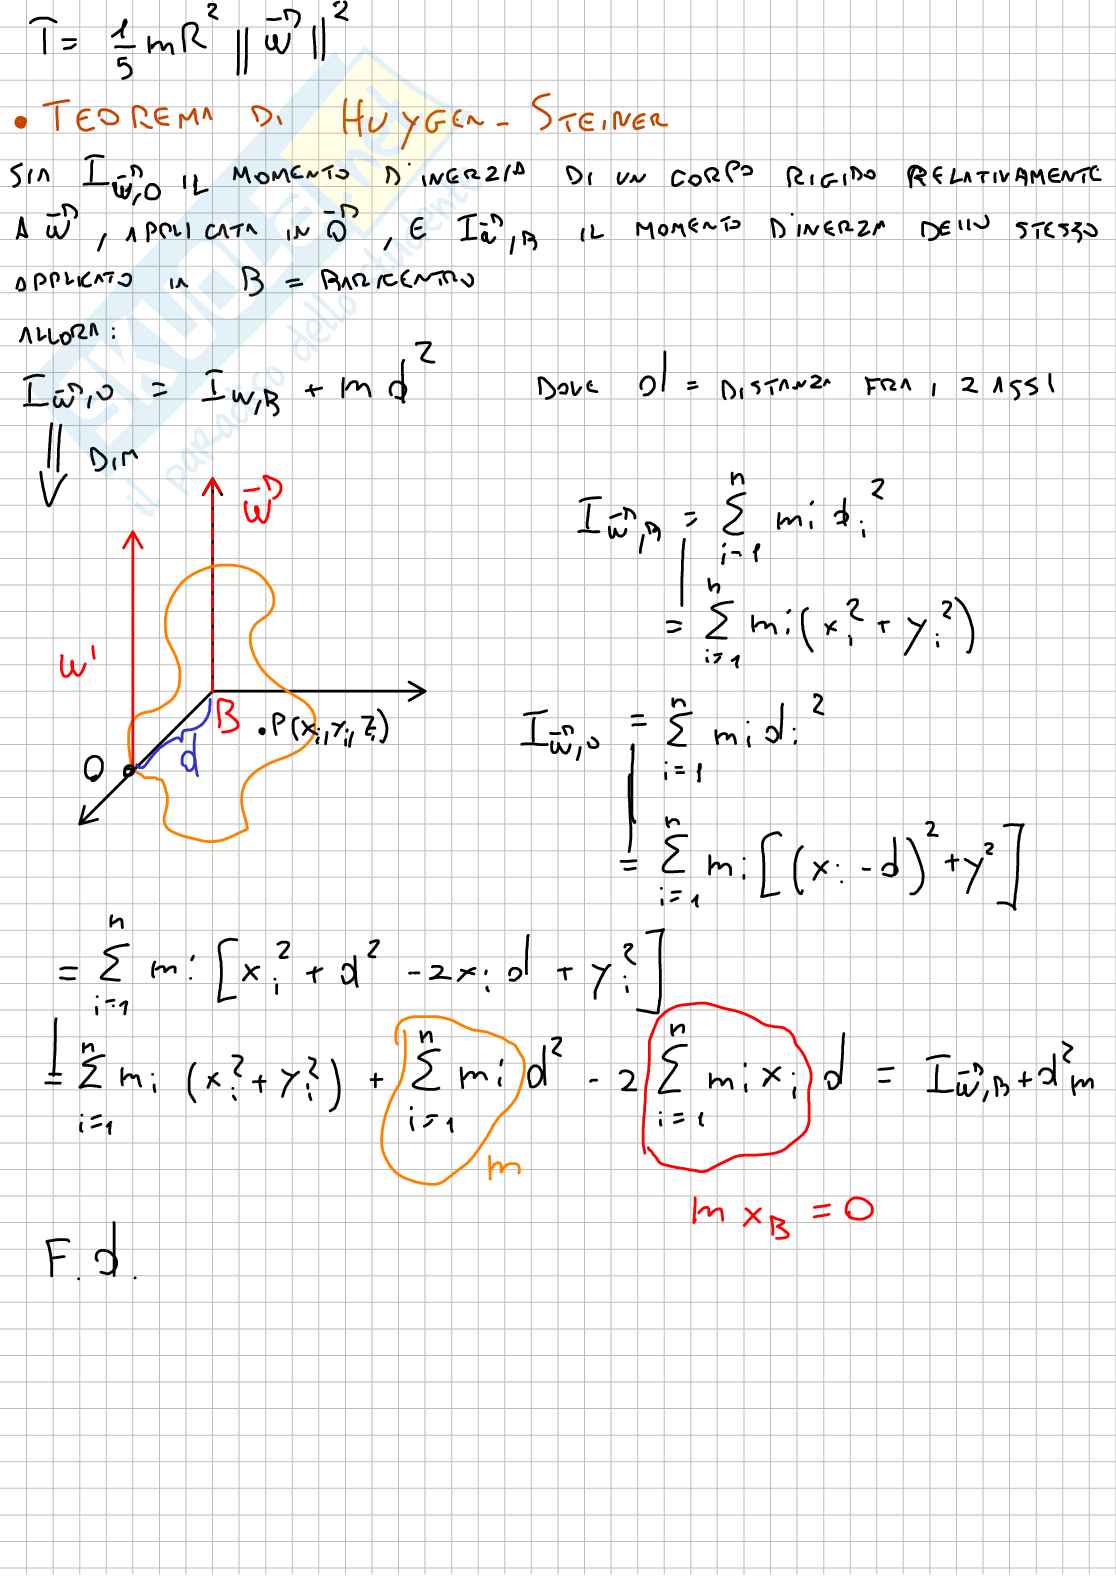 T = 1/5 m R² ‖w⃗‖²
• TEOREMA DI HUYGEN-STEINER
SIA I_w⃗,O IL MOMENTO D'INERZIA DI UN CORPO RIGIDO RELATIVAMENTE
A w⃗, APPLICATA IN O⃗, E I_w⃗,B IL MOMENTO D'INERZIA DELLO STESSO
APPLICATO IN B = BARICENTRO
ALLORA:
I_w⃗,O = I_w,B + m d² DOVE d = DISTANZA FRA I 2 ASSI
⇓ DIM
w⃗
w'
B
d
O
.P(xi, yi, zi)
I_w⃗,B = Σ_{i=1}^{n} mi di²
= Σ_{i=1}^{n} mi (xi² + yi²)
I_w⃗,O = Σ_{i=1}^{n} mi di²
= Σ_{i=1}^{n} mi [(xi - d)² + y²]
= Σ_{i=1}^{n} mi [xi² + d² - 2xi d + yi²]
= Σ_{i=1}^{n} mi (xi² + yi²) + Σ_{i=1}^{n} mi d² - 2 Σ_{i=1}^{n} mi xi d = I_w⃗,B + d² m
m
m x_B = 0
F.d.
SKUOLA.net
il paradiso dello studente